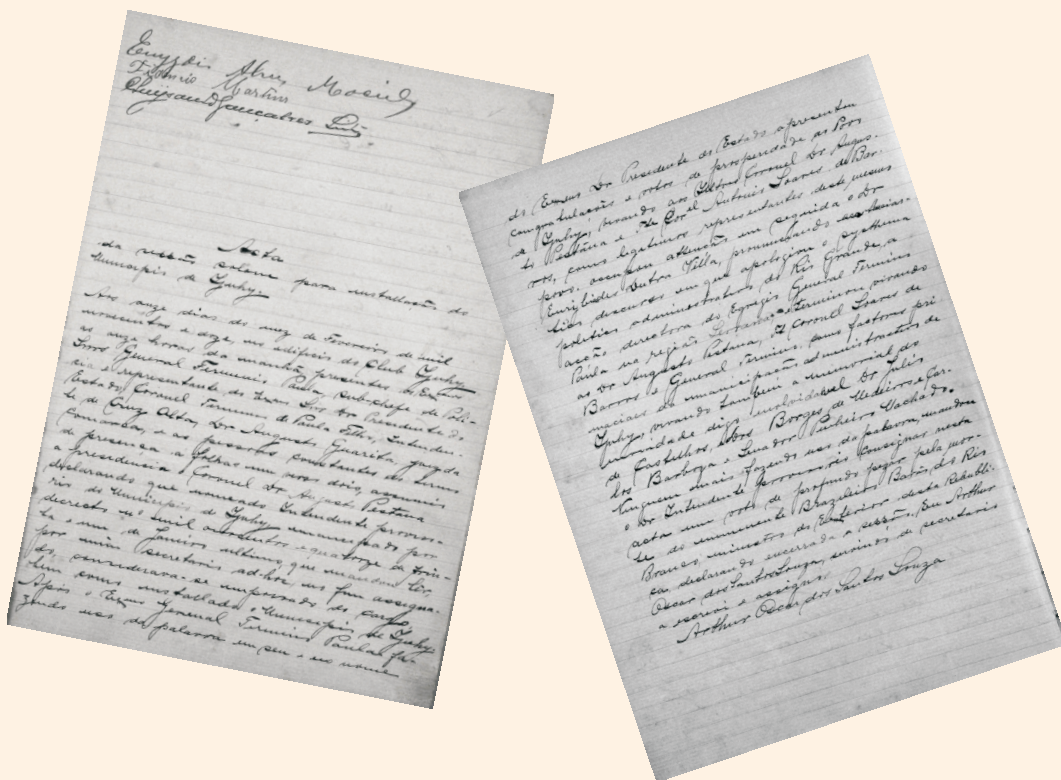 Alves Maciel
Martins
Gonçalves
Acta
da sessão solene para installação do
Municipio de Ijuhy
Aos onze dias do mez de Fevereiro de mil
novecentos e doze no edificio do Club Ijuhy
as onze horas da manhã presentes os Exmos
Snrs General Firmino Paula sub-chefe de Poli-
cia e representante do Exmo Snr Dr Presidente do
Estado, Coronel Firmino de Paula Filho, Intenden-
te de Cruz Alta, Dr Augusto Guarita, juiz da
comarca e as pessoas constantes do livro
de presença a folhas um e dois, assumiu
a presidencia o Coronel Dr Augusto Pestana
declarando que nomeado Intendente proviso-
rio do Municipio de Ijuhy por
decreto nº mil oitocentos e quatorze de trin-
ta e um de Janeiro ultimo, que mandou ler
por mim secretario ad-hoc, no fim assigna-
do considerava-se empossado do cargo
bem como installado o Municipio de Ijuhy.
Após o Exmo General Firmino Paula fa-
zendo uso da palavra em seu e no nome
do Exmo Dr Presidente do Estado apresentou
congratulações e votos de prosperidade ao Povo
de Ijuhy, vivando aos Coronel Dr Augus-
to Pestana e Tte Cor.el Antonio Soares de Bar-
ros, como legitimos representantes deste mesmo
povo. em seguida o Dr
Eurybides Dutra Villa, pronunciando
discurso em que apologiou o systhema
politico administrativo do Rio Grande, a
acção directora do Exmo General Firmino
Paula na região Serrana. Terminou vivando
ao Dr Augusto Pestana, Te Coronel Soares de
Barros e General Firmino como factores pri-
maciaes da emancipação administrativa de
Ijuhy, vivando tambem a memoria do
de Castilhos, Borges de Medeiros e Car-
los Barboza e Senador Pinheiro Machado.
Ninguem mais fazendo uso da palavra, mandou
o Dr Intendente provisorio consignar nesta
acta um voto de profundo pezar pela mor-
te do imminente Brazileiro Barão do Rio
Branco, ministro do Exterior desta Republi-
ca, declarando encerrada a sessão. Eu Arthur
Oscar dos Santos Souza, servindo de secretario
a escrevi e assigno.
Arthur Oscar dos Santos Souza